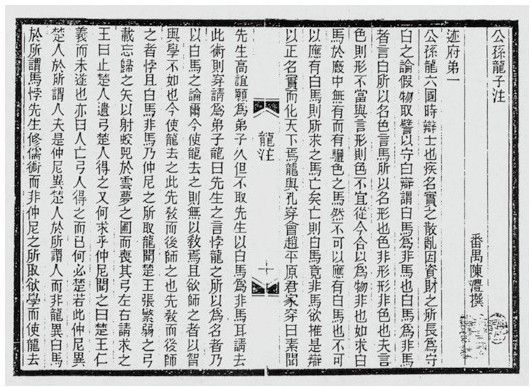 公孫龍子注
番禺陳澧撰
迹府第一
公孫龍六國時辯士也疾名實之散亂因資財之所長爲守
白之論假物取譬以守白辯謂白馬爲非馬也白馬爲非馬
者言白所以名色言馬所以名形也色非形形非色也夫言
色則形不當與言形則色不宜從今合以爲物非也如求白
馬於廄中無有而有驪色之馬然不可以應有白馬也不可
以應有白馬則所求之馬亡矣亡則白馬竟非馬欲推是辯
以正名實而化天下焉龍與孔穿會趙平原君家穿曰素聞
龍注
一
先生高誼願爲弟子久但不取先生以白馬爲非馬耳請去
此術則穿請爲弟子龍曰先生之言悖龍之所以爲名者乃
以白馬之論爾今使龍去之則無以敎焉且欲師之者以智
與學不如也今使龍去之此先敎而後師之也先敎而後師
之者悖且白馬非馬乃仲尼之所取龍聞楚王張繁弱之弓
載忘歸之矢以射蛟兕於雲夢之圃而喪其弓左右請求之
王曰止楚人遺弓楚人得之又何求乎仲尼聞之曰楚王仁
義而未遂也亦曰人亡弓人得之而已何必楚若此仲尼異
楚人於所謂人夫是仲尼異楚人於所謂人而非龍異白馬
於所謂馬悖先生修儒術而非仲尼之所取欲學而使龍去